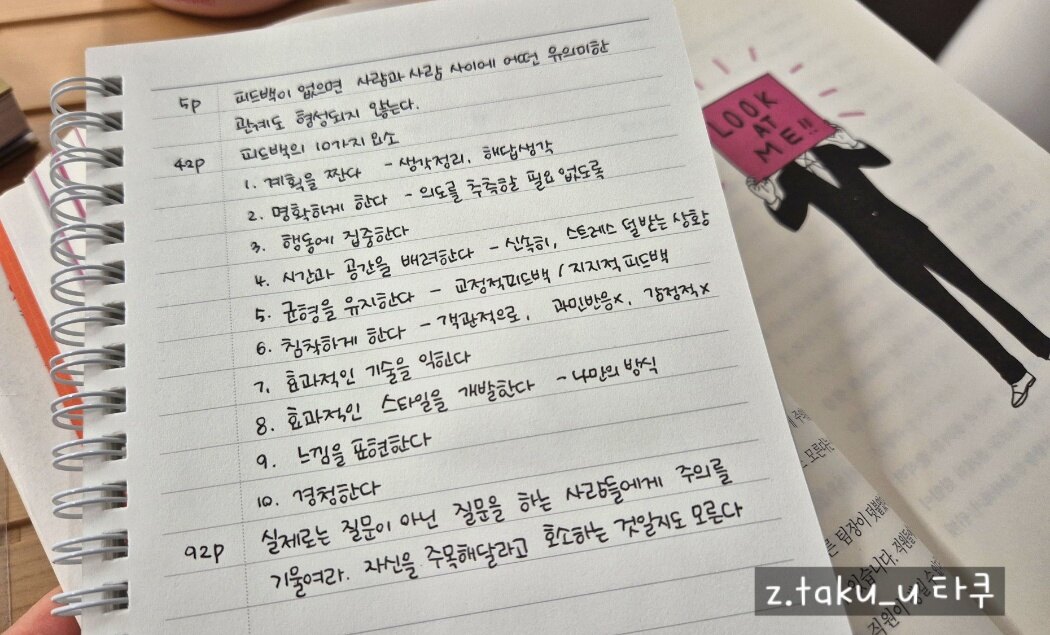 5p 피드백이 없으면 사람과 사람 사이에 어떤 유의미한
관계도 형성되지 않는다.
42p 피드백의 10가지 요소
1. 계획을 짠다 - 생각정리, 해답생각
2. 명확하게 한다 - 의도를 추측할 필요 없도록
3. 행동에 집중한다
4. 시간과 공간을 배려한다 - 신속히, 스트레스 덜 받는 상황
5. 균형을 유지한다 - 교정적피드백 / 지지적 피드백
6. 침착하게 한다 - 객관적으로, 과민반응x, 감정적x
7. 효과적인 기술을 익힌다
8. 효과적인 스타일을 개발한다 - 나만의 방식
9. 느낌을 표현한다
10. 경청한다
92p 실제로는 질문이 아닌 질문을 하는 사람들에게 주의를
기울여라. 자신을 주목해달라고 호소하는 것일지도 모른다
LOOK
AT
ME!!
모른다
른 팀장이
있습니다. 직원들
직원이
z.taku_u 타쿠